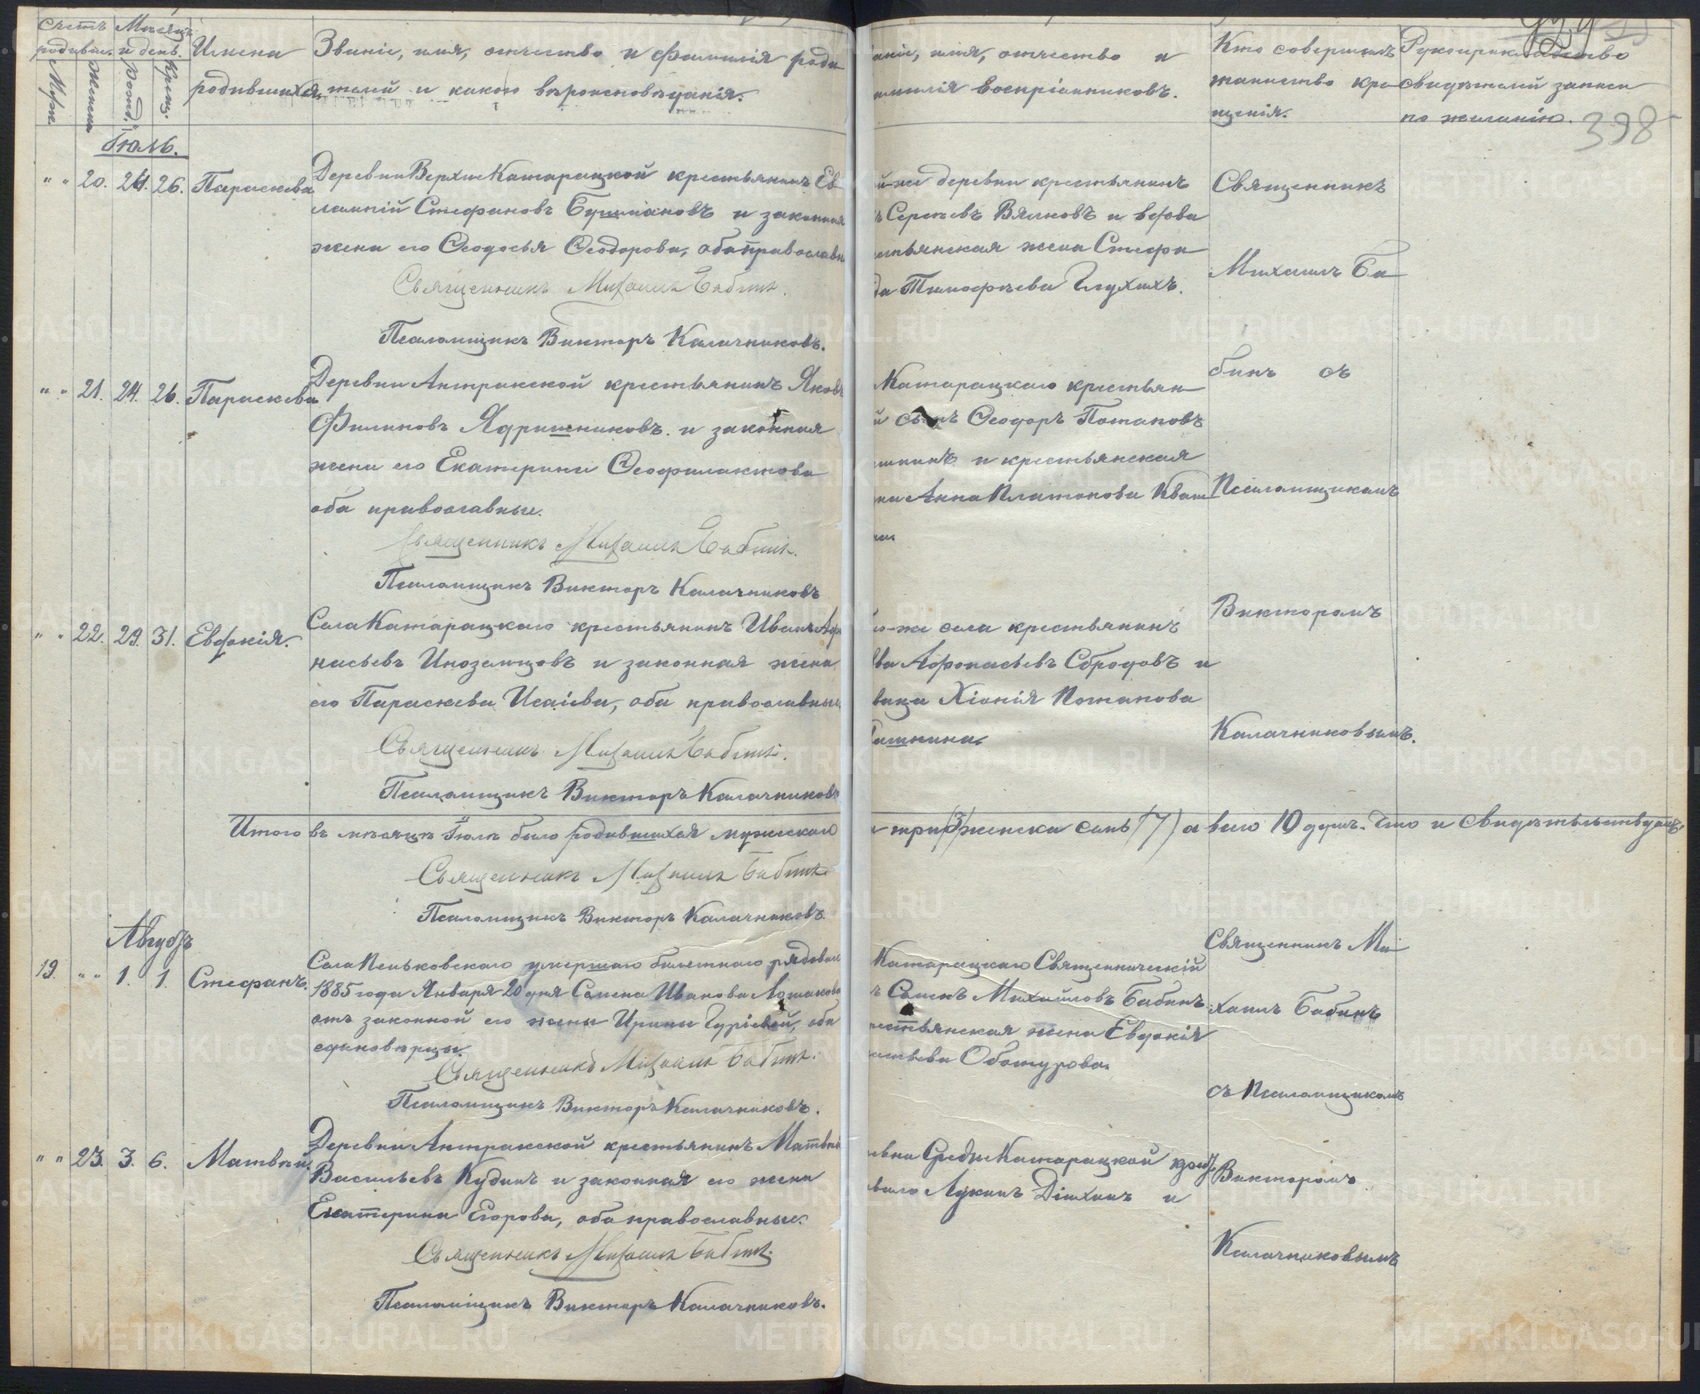 Счетъ родивш.
Мѣсяцъ и день
Муж.
Женск.
Рожд.
Крещ.
Имена
родившихся.
Званіе, имя, отчество и фамилія роди
телей и какого вѣроисповѣданія.
аніе, имя, отчество и
милія воспріемниковъ.
Кто совершалъ
таинство кре
щенія.
Рукоприкладство
свидѣтелей записи
по желанію.
398
Іюль.
" " 20. 24. 26. Параскева
Деревни Верхне Катарацкой крестьянинъ Ев
лампій Стефановъ Бушмановъ и законная
жена его Ѳеодосья Ѳеодорова, оба православн
Священникъ Михаилъ Бабинъ.
Псаломщикъ Викторъ Калачниковъ.
й-же деревни крестьянинъ
ъ Сергѣевъ Вялковъ и вдова
стьянская жена Стефа
да Тимофѣева Глухихъ.
Священникъ
Михаилъ Ба
бинъ съ
Псаломщикомъ
Викторомъ
Калачниковымъ.
" " 21. 24. 26. Параскева
Деревни Антракской крестьянинъ Яковъ
Филиповъ Ядришниковъ и законная
жена его Екатерина Ѳеофилактова
оба православные.
Священникъ Михаилъ Бабинъ.
Псаломщикъ Викторъ Калачниковъ
Катарацкаго крестьян
й сынъ Ѳеодоръ Потаповъ
и крестьянская
на Анна Платонова Кваш
" " 22. 29. 31. Евдокія.
Села Катарацкаго крестьянинъ Иванъ Афа
насьевъ Иноземцовъ и законная жена
его Параскева Исаіева, оба православные
Священникъ Михаилъ Бабинъ.
Псаломщикъ Викторъ Калачниковъ
о-же села крестьянинъ
ва Афонасьевъ Сбродовъ и
вица Хіонія Потапова
Итого въ мѣсяцѣ Іюлѣ было родившихся мужескаго
а три (3) женска семь (7) а всего 10 душъ. Что и свидѣтельствуемъ.
Священникъ Михаилъ Бабинъ
Псаломщикъ Викторъ Калачниковъ.
Августъ
19. " " 1. 1. Стефанъ.
Села Пеньковскаго умершаго билетнаго рядоваго
1885 года Января 20 дня Семена Иванова Ломакова
отъ законной его жены Ирины Гуріевой, оба
единовѣрцы.
Священникъ Михаилъ Бабинъ.
Псаломщикъ Викторъ Калачниковъ.
Катарацкаго Священническій
ъ Семенъ Михайловъ Бабинъ
рестьянская жена Евдокія
Обожурова.
Священникъ Ми
хаилъ Бабинъ
съ Псаломщикомъ
Викторомъ
Калачниковымъ
" " 23. 3. 6. Матвѣй
Деревни Антракской крестьянинъ Матвѣй
Васильевъ Кудинъ и законная его жена
Екатерина Егорова, оба православные.
Священникъ Михаилъ Бабинъ.
Псаломщикъ Викторъ Калачниковъ.
евни Средне Катарацкой
Лукинъ и
METRIKI.GASO-URAL.RU